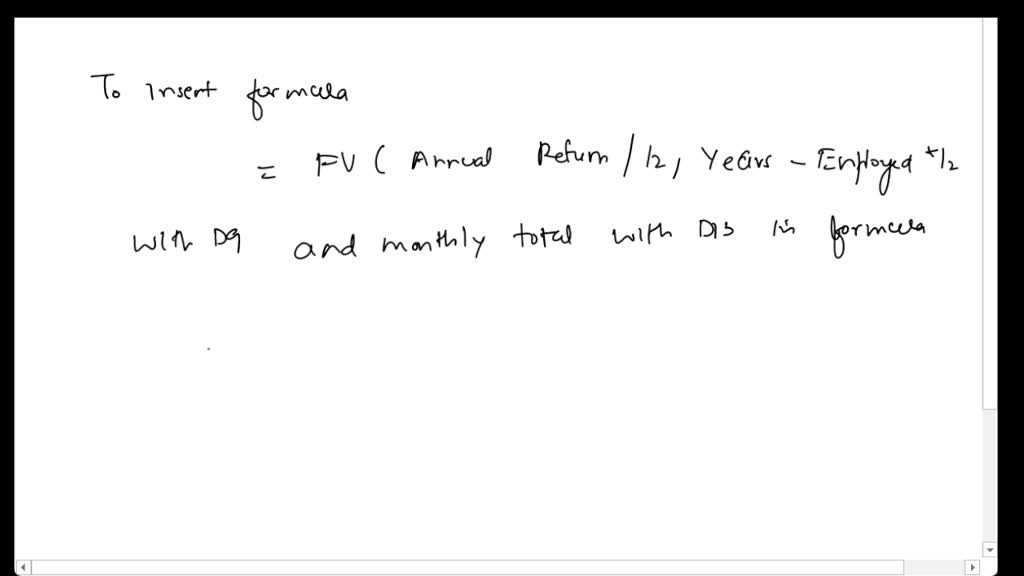 To insert formula
= FV ( Annual Return / 12, Years - Employed * 12
with D9 and monthly total with D13 in formula